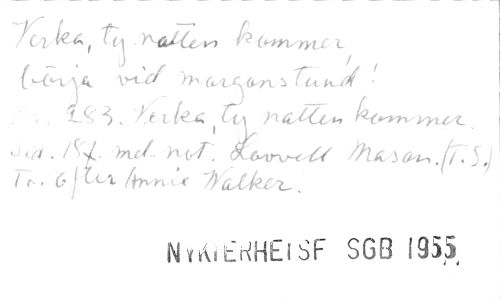 Verka, ty natten kommer,
börja vid morgonstund!
Nr. 283. Verka, ty natten kommer.
sid. 187. mel. not. Lowell Mason. (T.S.)
Tr. efter Annie Walker.
NYKTERHETSF SGB 1955